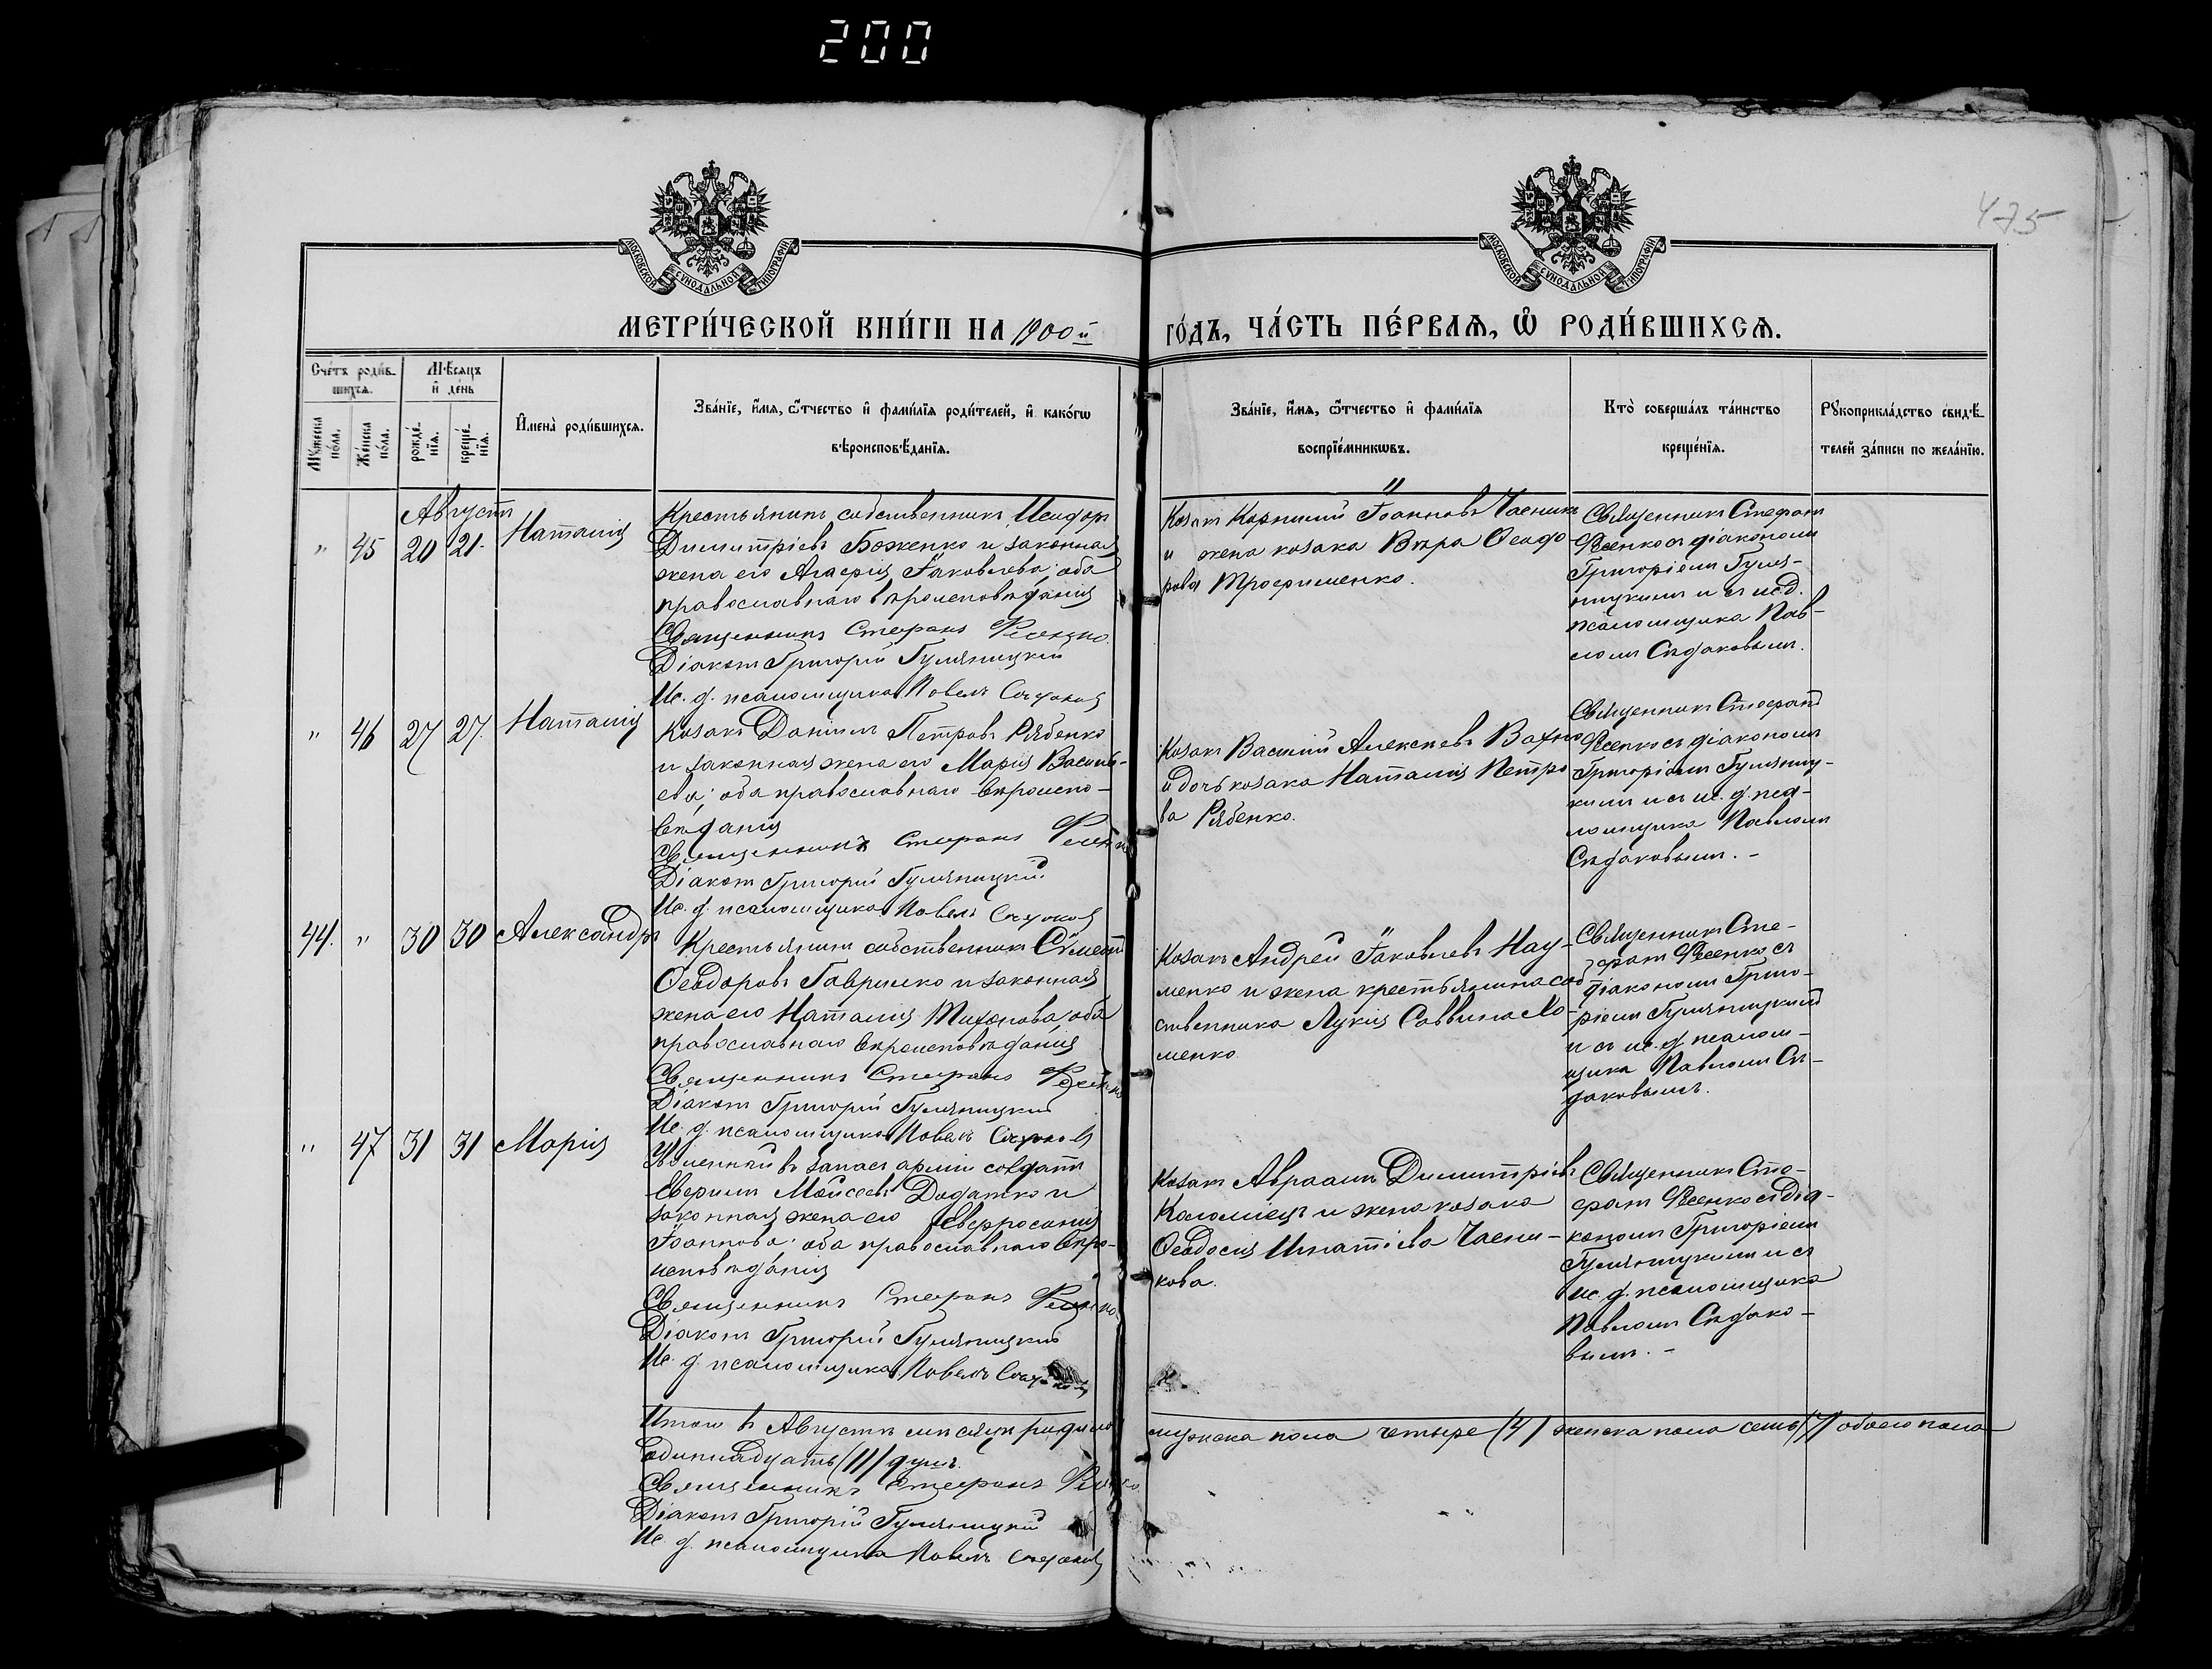 200
475
МОСКОВСКОЙ СѴНОДАЛЬНОЙ ТИПОГРАФІИ
МОСКОВСКОЙ СѴНОДАЛЬНОЙ ТИПОГРАФІИ
МЕТРИ́ЧЕСКОЙ КНИ́ГИ НА 1900й
ГО́ДЪ, ЧА́СТЬ ПЕ́РВАѦ, Ѽ РОДИ́ВШИХСѦ.
Сче́тъ роди́в-
шихсѧ.
Мꙋ́жеска по́ла.
Же́нска по́ла.
Мѣ́сѧцъ
и҆ де́нь
рожде́-
нїѧ.
креще́-
нїѧ.
И҆мена̀ роди́вшихсѧ.
Зва́нїе, и҆́мѧ, ѻ҆́тчество и҆ фами́лїѧ роди́телей, и҆ како́гѡ
вѣроисповѣ́данїѧ.
Зва́нїе, и҆́мѧ, ѻ҆́тчество и҆ фами́лїѧ
воспрїе́мникѡвъ.
Кто̀ соверша́лъ та́инство
креще́нїѧ.
Рꙋкоприкла́дство свидѣ́-
телей за́писи по жела́нїю.
Августъ
" 45 20 21. Наталія
Крестьянинъ собственникъ Исидоръ
Димитріевъ Боженко и законная
жена его Агафія Іаковлева; оба
православнаго вѣроисповѣданія
Священникъ Стефанъ Фесенко
Діаконъ Григорій Гуляницкій
Ис. д. псаломщика Павелъ Сѣдаковъ
Козакъ Корнилій Іоанновъ Чаеникъ
и жена козака Вѣра Ѳеодо-
рова Трофименко.
Священникъ Стефанъ
Фесенко съ діакономъ
Григоріемъ Гуля-
ницкимъ и съ ис. д.
псаломщика Пав-
ломъ Сѣдаковымъ.
" 46 27 27. Наталія
Козакъ Даніилъ Петровъ Рябенко
и законная жена его Марія Василь-
ева; оба православнаго вѣроиспо-
вѣданія
Священникъ Стефанъ Фесенко
Діаконъ Григорій Гуляницкій
Ис. д. псаломщика Павелъ Сѣдаковъ
Козакъ Василій Алексѣевъ Вахно
и дочь козака Наталія Петро
ва Рябенко.
Священникъ Стефанъ
Фесенко съ діакономъ
Григоріемъ Гуляниц-
кимъ и съ ис. д. пса-
ломщика Павломъ
Сѣдаковымъ. –
44. " 30 30 Александръ
Крестьянинъ собственникъ Сѵмеонъ
Ѳеодоровъ Гавришко и законная
жена его Наталія Тихонова, оба
православнаго вѣроисповѣданія
Священникъ Стефанъ Фесенко
Діаконъ Григорій Гуляницкій
Ис. д. псаломщика Павелъ Сѣдаковъ
Козакъ Андрей Іаковлевъ Нау-
менко и жена крестьянина соб
ственника Лукія Саввина Ло-
менко
Священникъ Сте-
фанъ Фесенко съ
діакономъ Григо-
ріемъ Гуляницкимъ
и съ ис. д. псалом-
щика Павломъ Сѣ-
даковымъ.
" 47 31 31 Марія
Уволенный въ запасъ арміи солдатъ
Евфимъ Моѵсеевъ Додатко и
законная жена его Евфросинія
Іоаннова; оба православнаго вѣро-
исповѣданія
Священникъ Стефанъ Фесенко
Діаконъ Григорій Гуляницкій
Ис. д. псаломщика Павелъ Сѣдаковъ
Козакъ Авраамъ Димитріевъ
Коломіецъ и жена козака
Ѳеодосія Игнатіева Чаени-
кова.
Священникъ Сте-
фанъ Фесенко съ діа-
кономъ Григоріемъ
Гуляницкимъ и съ
ис. д. псаломщика
Павломъ Сѣдако-
вымъ. –
Итого въ Августѣ мѣсяцѣ родилось мужеска пола четыре /4/ женска пола семь /7/ обоего пола
одиннадцать /11/ душъ.
Священникъ Стефанъ Фесенко
Діаконъ Григорій Гуляницкій
Ис. д. псаломщика Павелъ Сѣдаковъ